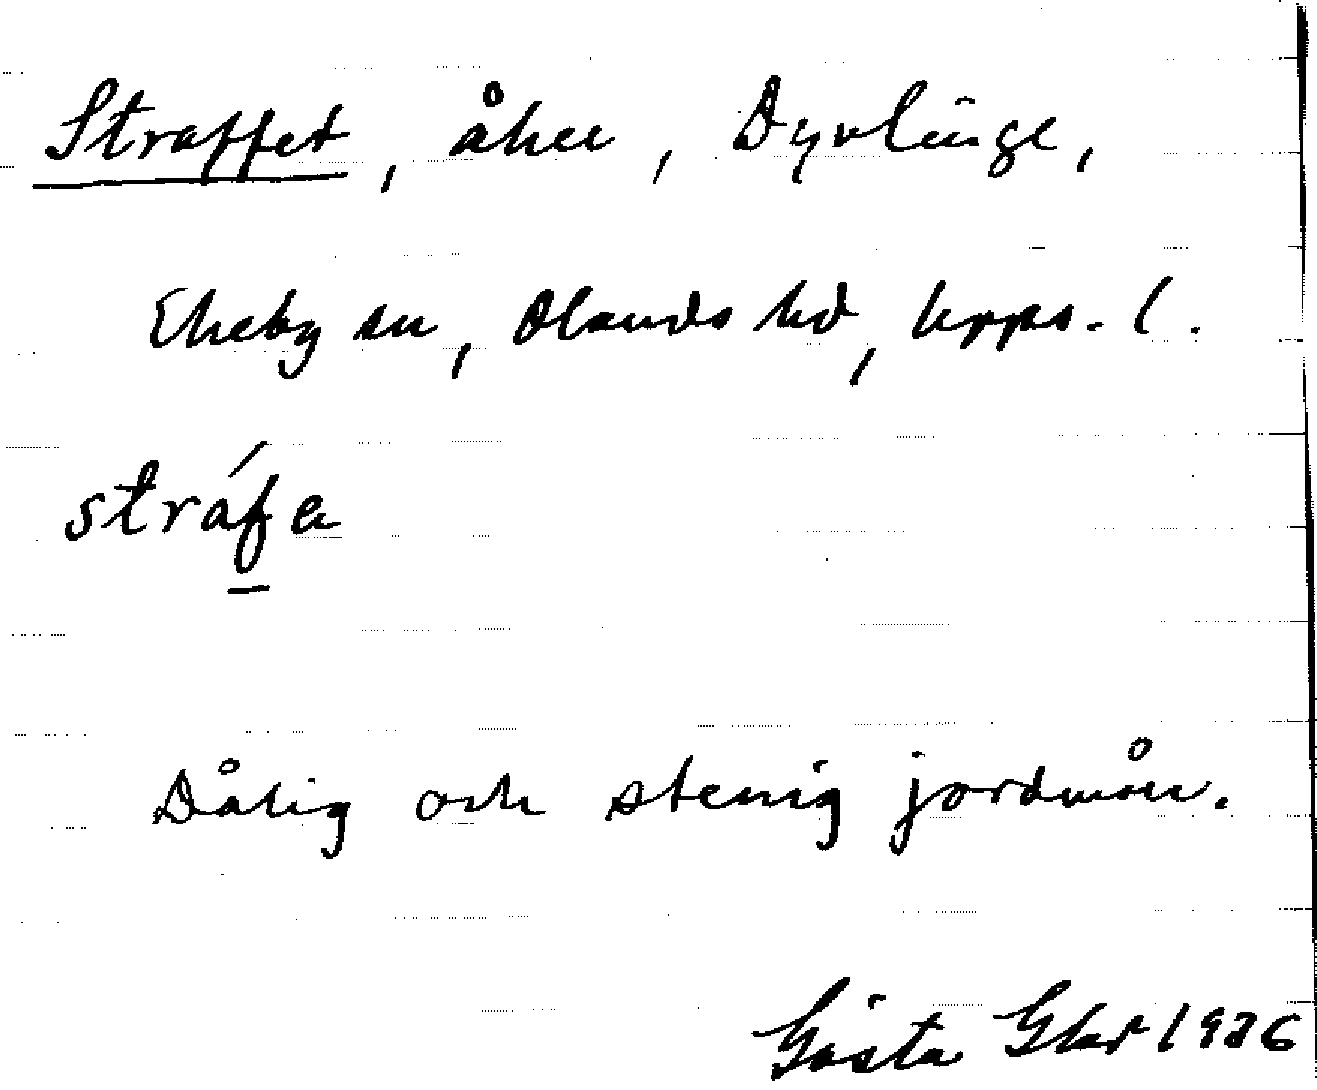 Straffet, åker, Dyvlinge,
Ekeby sn, Olands hd, Upps. l.
stráfa
Dålig och stenig jordmån.
Gösta 1926